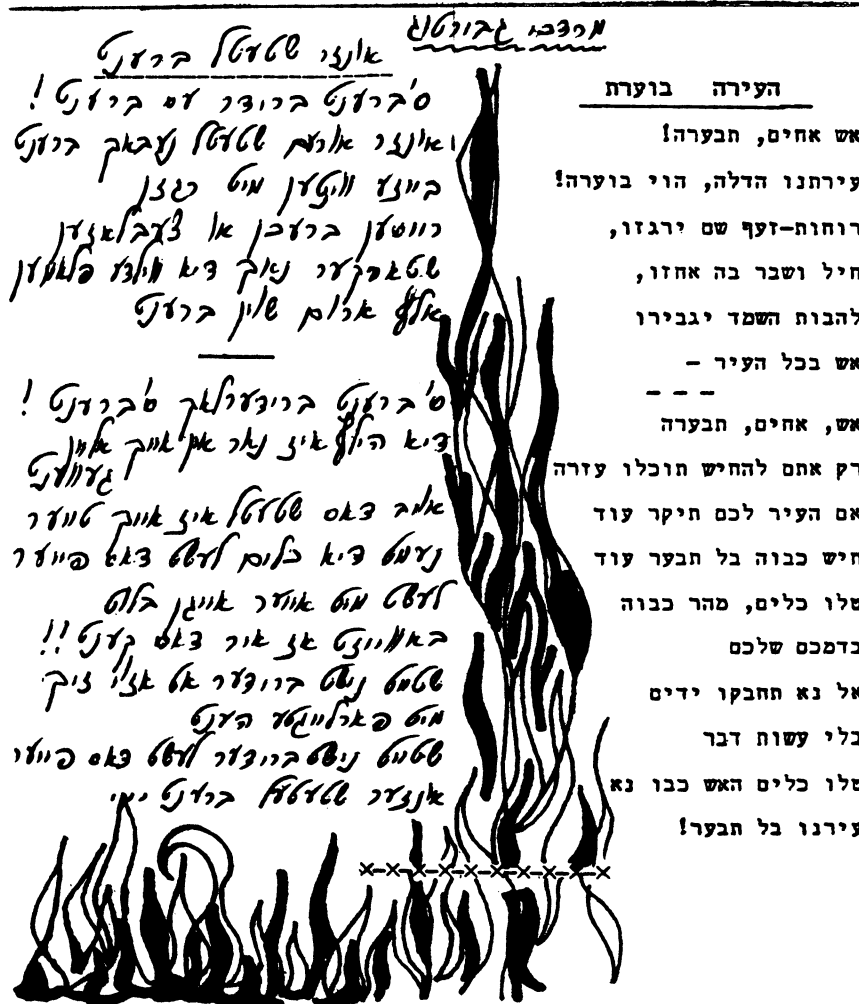 מרדכי גבורטיג
העירה בוערת
אש אחים, תבערה!
עירתנו הדלה, הוי בוערה!
רוחות-זעף שם ירגזו,
חיל ושבר בה אחזו,
להבות השמד יגבירו
אש בכל העיר -
אש, אחים, תבערה
רק אתם להחיש תוכלו עזרה
אם העיר לכם תיקר עוד
חיש כבוה בל תבער עוד
טלו כלים, מהר כבוה
בדמכם שלכם
אל נא תחבקו ידים
בלי עשות דבר
טלו כלים האש כבו נא
עירנו בל תבער!
אונזר שטעטל ברענט
ס'ברענט ברודער עס ברענט !
אונזר אורעם שטעטל נעבאך ברענט
בייזע ווינטען מיט רגזן
רייסען ברעכן און צעבלאזען
שטארקער נאוך דיא ווילדע פלאמען
אלץ ארום שוין ברענט
ס'ברענט ברידערלאך ס'ברענט !
דיא הילף איז נאר אין אייך אליין
געווענט
אויב דאס שטעטל איז אייך טייער
נעמט דיא כלים לעשט דאס פייער
לעשט מיט אייער אייגן בלוט
באווייזט אז איר דאס קענט !!
שטייט נישט ברודער אט אזוי זיך
מיט פארלייגטע הענט
שטייט נישט ברודער לעשט דאס פייער
אונזער שטעטל ברענט